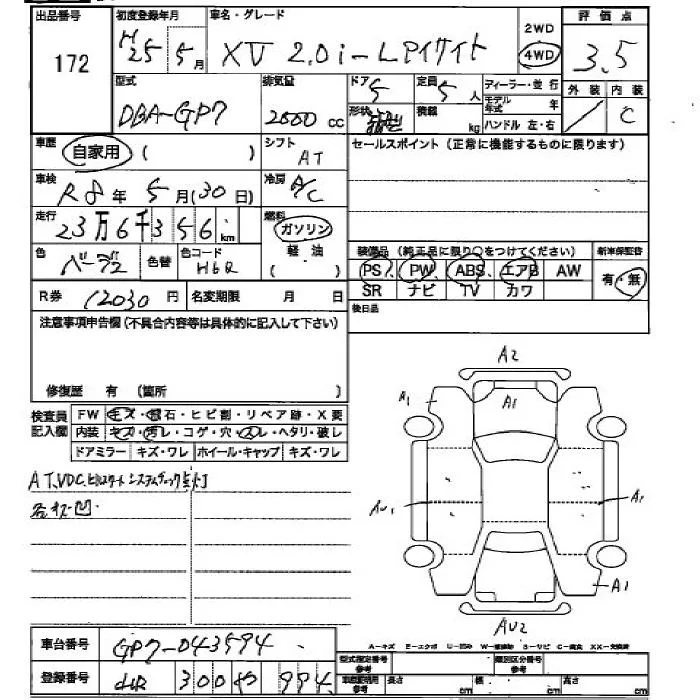 出品番号 初度登録年月 車名・グレード 評価点
172 H25 5月 XV 2.0i-Lアイサイト 2WD 4WD 3.5
型式 排気量 ドア 5 定員 5人 ディーラー・並行 外装 内装
DBA-GP7 2000cc 形状 積載 kg モデル年式 年 ハンドル 左・右 C
車歴 自家用 ( ) シフト AT セールスポイント (正常に機能するものに限ります)
車検 R8年 5月(30日) 冷房 A/C
走行 23万6千356km 燃料 ガソリン
色 ベージュ 色替 色コード H6R 軽油 ( )
装備品 (純正品に限り○をつけてください) 新車保証書
PS PW ABS エアB AW 有・無
SR ナビ TV カワ
R券 12030円 名変期限 月 日 後日品
注意事項申告欄 (不具合内容等は具体的に記入して下さい)
修復歴 有 (箇所 )
検査員記入欄 FW キズ・飛石・ヒビ割・リペア跡・X要
内装 キズ・汚レ・コゲ・穴・スレ・ヘタリ・破レ
ドアミラー キズ・ワレ ホイール・キャップ キズ・ワレ
AT、VDC、ヒルスタートシステムチェック点灯
各キズ凹
A2
A1 A1
AU1 A1
A1
AU2
車台番号 GP7-043594
A-キズ E-エクボ U-凹み W-補修跡 S-サビ C-腐食 XX-交換済
型式指定番号 参考 類別区分番号 参考
登録番号 300 や 994
車庫証明用 参考 長さ cm 幅 cm 高さ cm